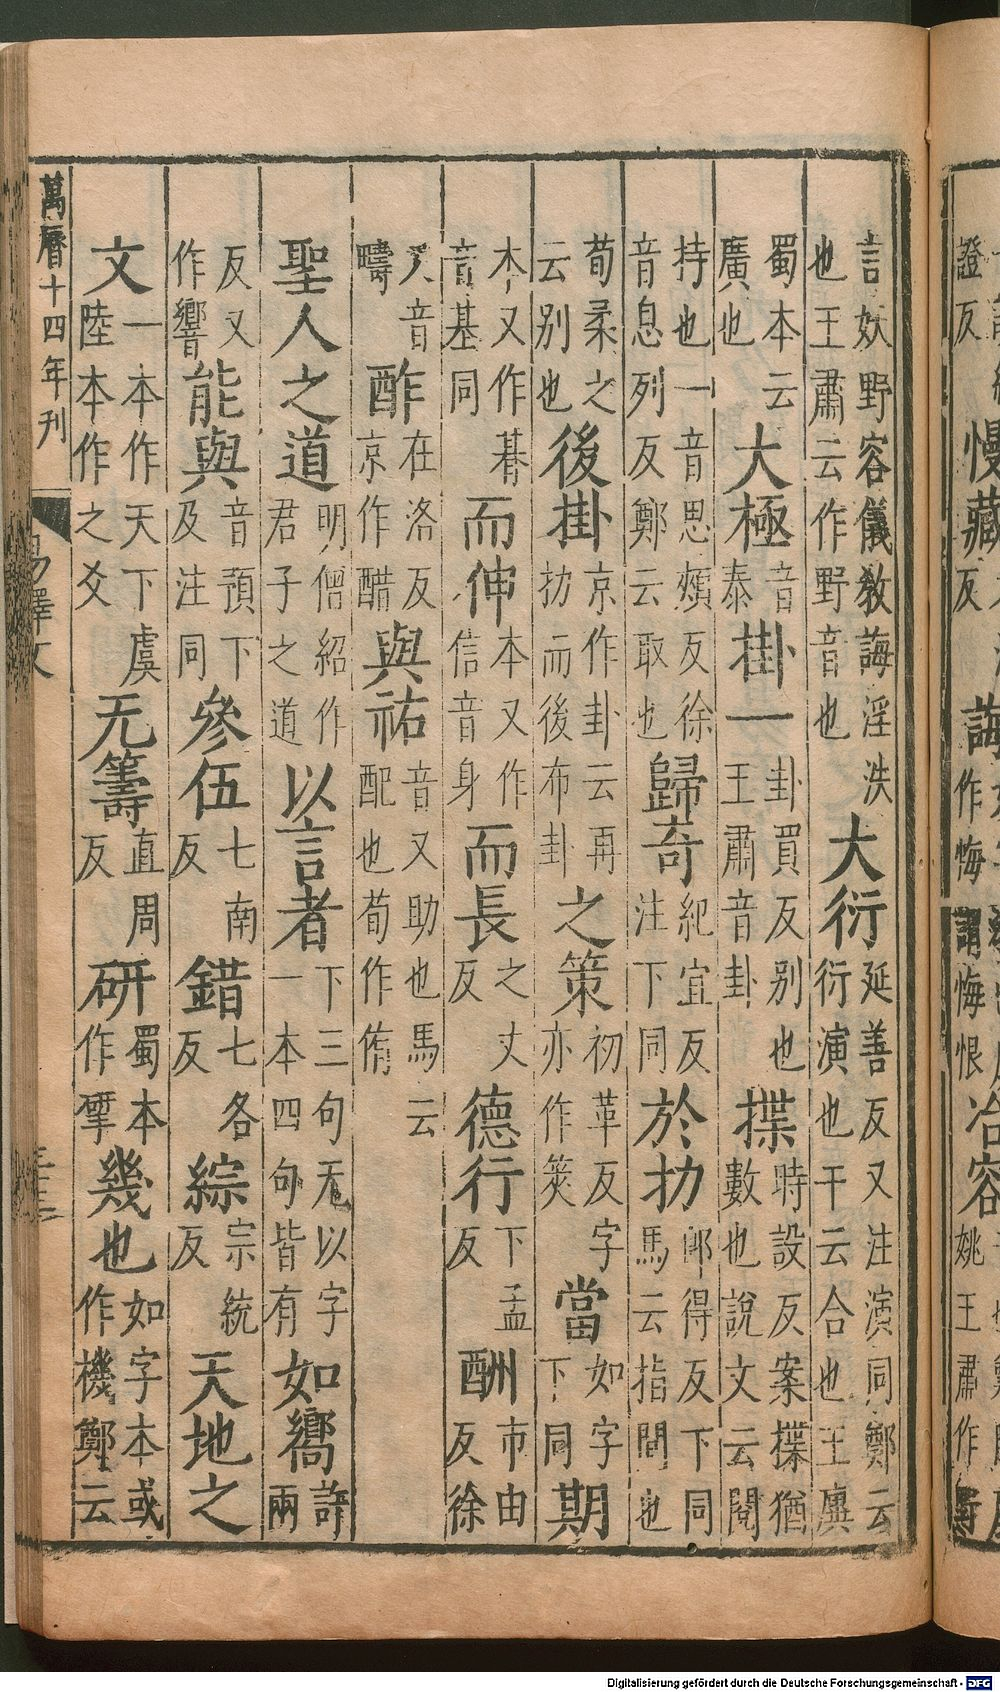 言妖野容儀教誨淫泆也王肅云作野音也大衍延善反又注演同鄭云衍演也干云合也王廙
蜀本云廣也大極音泰掛一卦買反别也王肅音卦揲時設反案揲猶數也說文云閱
持也一音思頰反徐音息列反鄭云取也歸奇紀宜反注下同於扐郎得反下同馬云指間也
荀柔之云别也後掛京作卦云再扐而後布卦之策初革反字亦作筴當如字下同期
本又作朞音基同而伸本又作信音身而長之丈反德行下孟反酬市由反徐
又音疇酢在洛反京作醋與祐音又助也馬云配也荀作侑
聖人之道明僧紹作君子之道以言者下三句无以字一本四句皆有如嚮許兩
反又作響能與音預下及注同參伍七南反錯七各反綜宗統反天地之
文一本作天下虞陸本作之爻无籌直周反研蜀本作揅幾也如字本或作機鄭云
萬曆十四年刊
易釋文
Digitalisierung gefördert durch die Deutsche Forschungsgemeinschaft - DFG